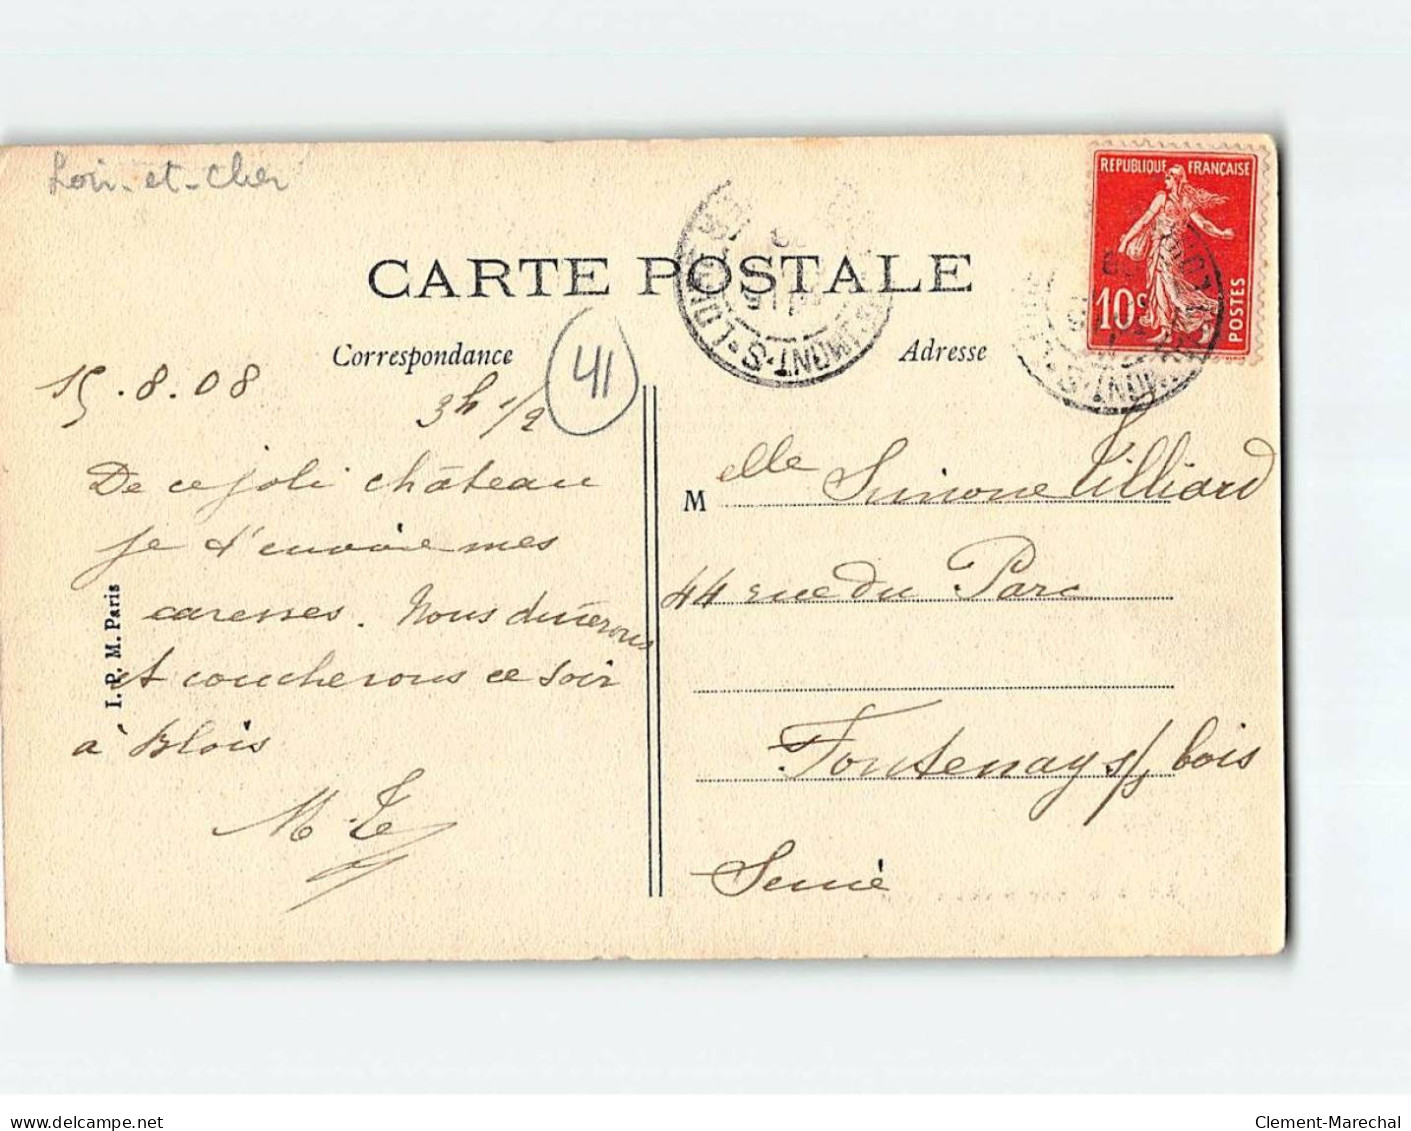 Loir-et-Cher
REPUBLIQUE FRANÇAISE
10c
POSTES
CARTE POSTALE
Correspondance
Adresse
41
15.8.08
3h 1/2
De ce joli château
je t'envoie mes
caresses. Nous dînerons
et coucherons ce soir
à Blois
M.T.
I. P. M. Paris
Melle Simone Tilliard
44 rue du Parc
Fontenay s/s bois
Seine
delcampe.net
Clement-Marechal